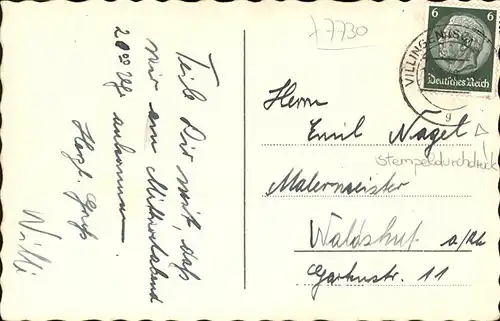 Teile Dir mit, daß
wir am Mittwochabend
20⁰⁰ Uhr ankommen.
Herzl. Gruß
Willi
x7730
VILLINGEN
6 6
Deutsches Reich
g
Herrn
Emil Nagel
stempeldurchdruck
Malermeister
Waldshut a/Rh
Gartenstr. 11